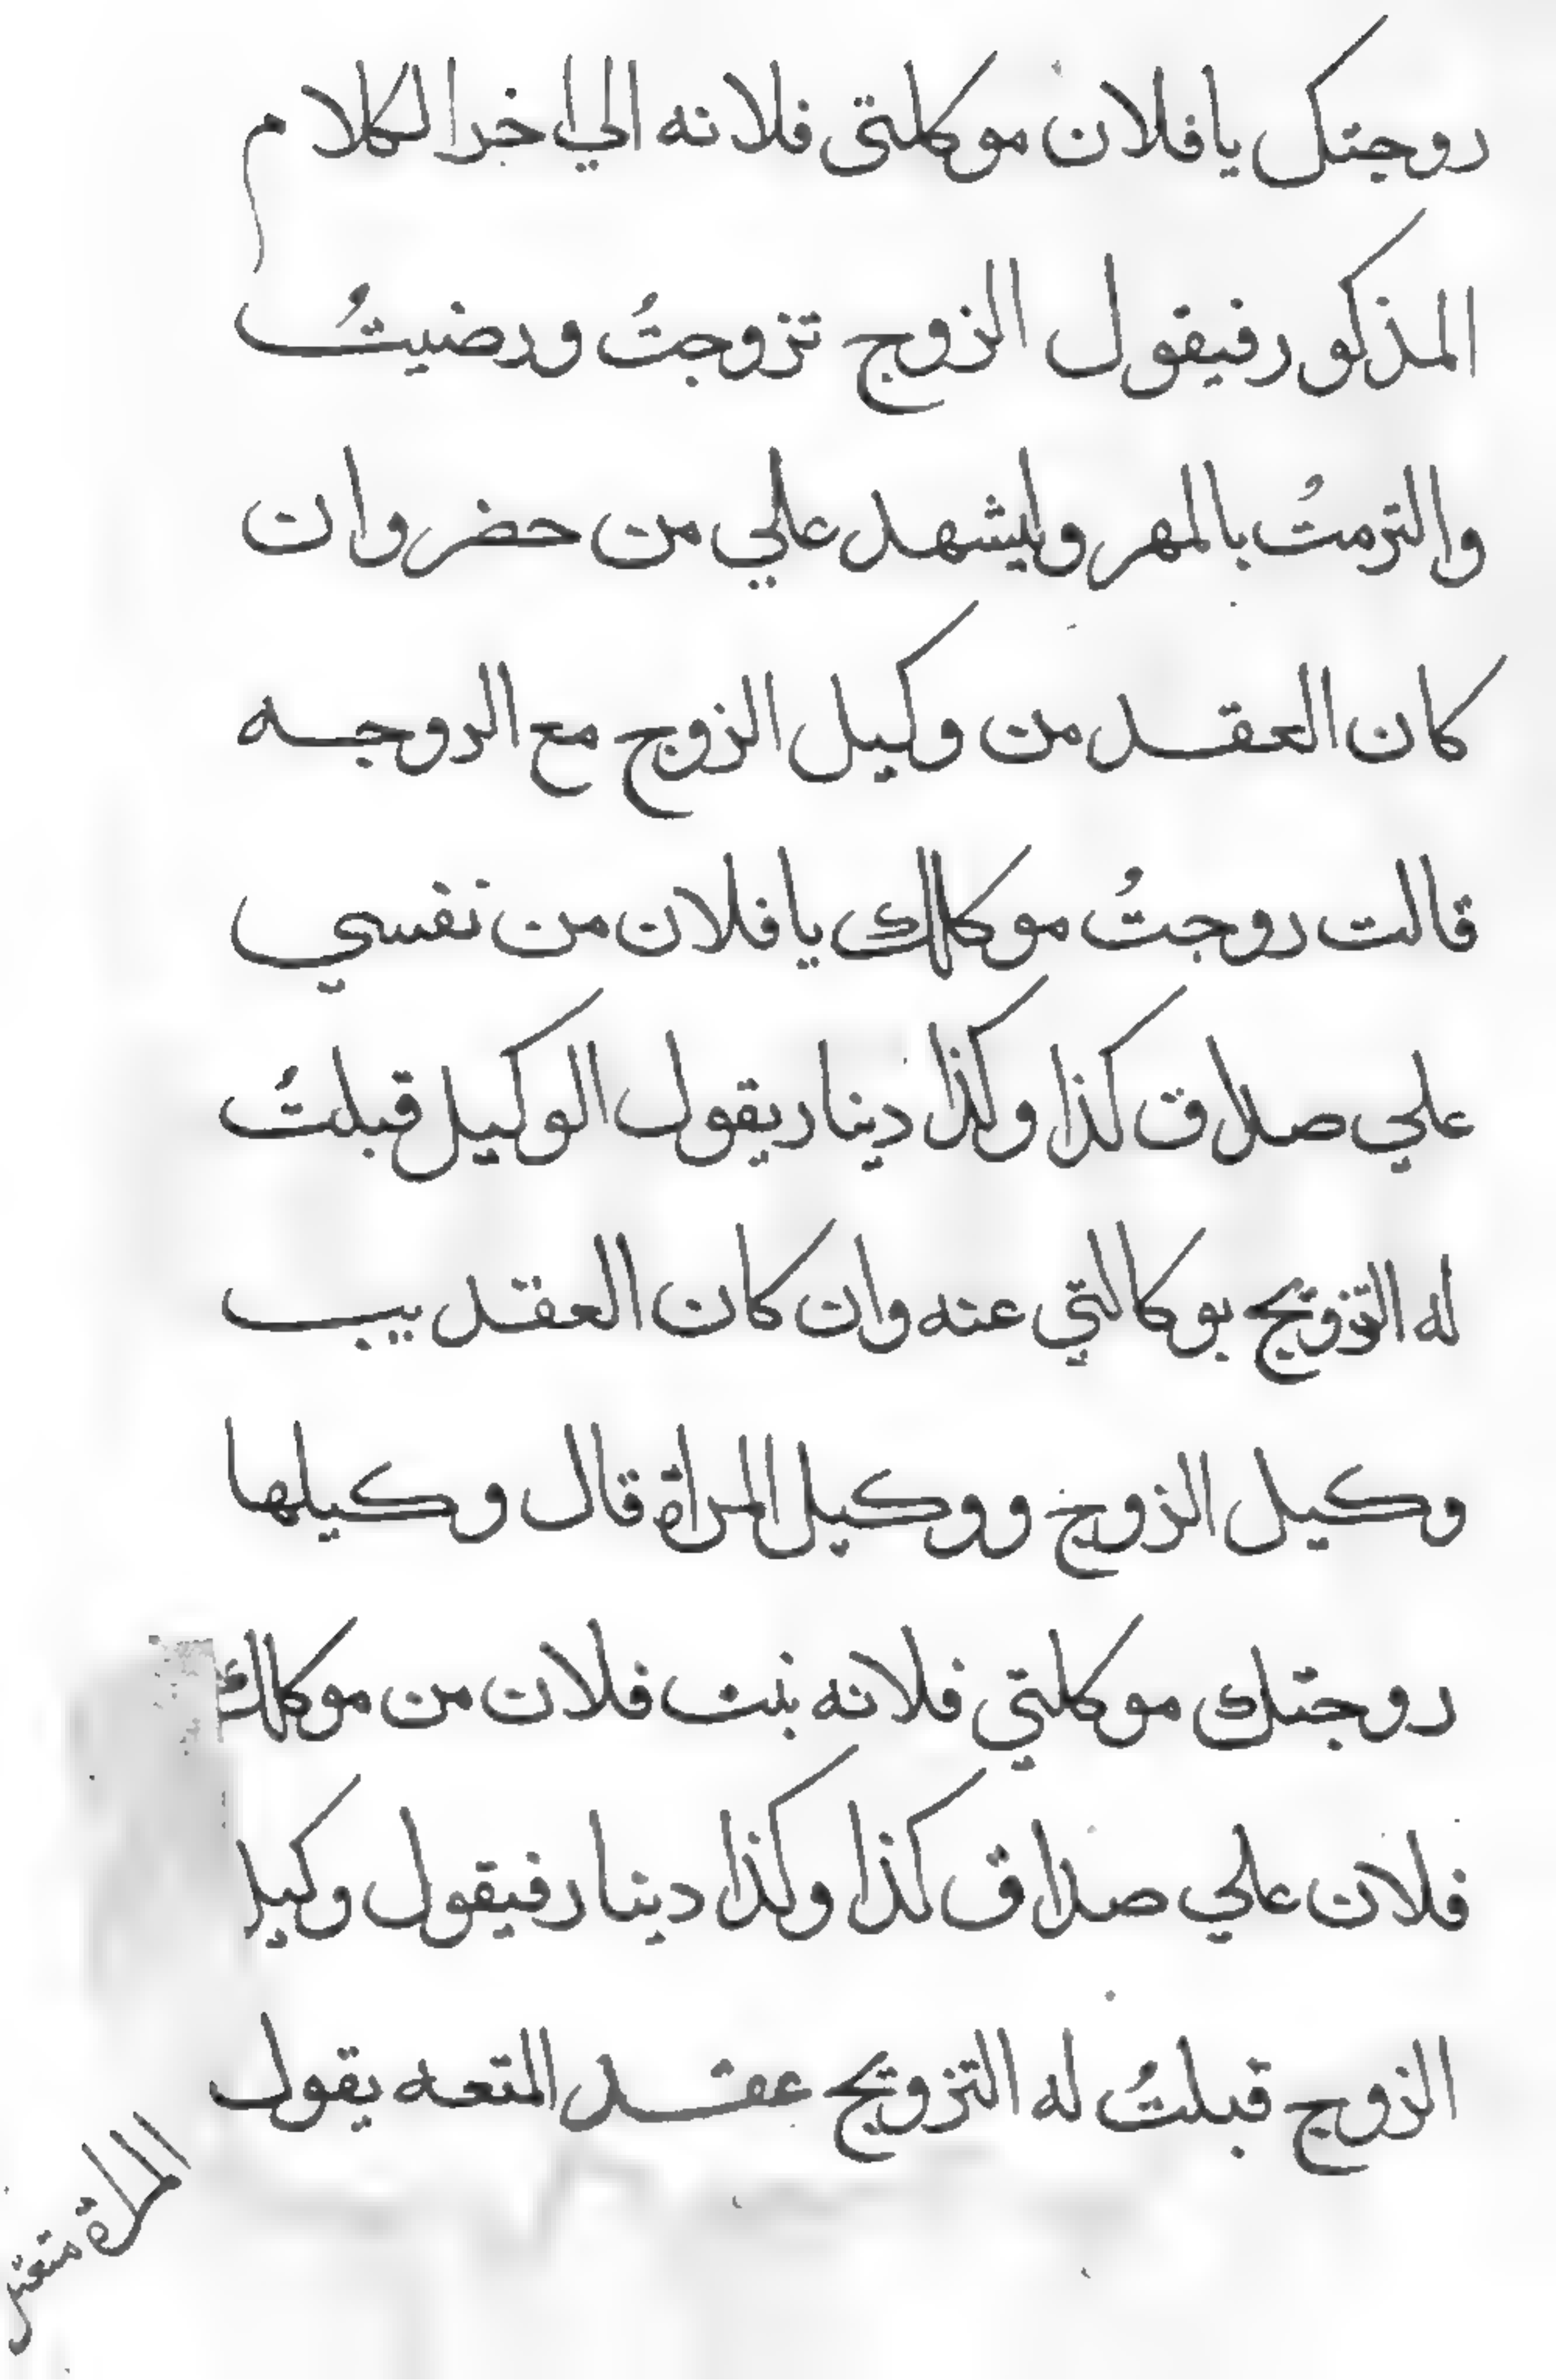 روجتك يا فلان موكلتى فلانه الي اخر الكلام
المذكور فيقول الزوج تزوجتُ ورضيتُ
والتزمتُ بالمهر وليشهد علي من حضر وان
كان العقد من وكيل الزوج مع الروجه
قالت روجتُ موكلك يا فلان من نفسي
علي صداق كذا وكذا دينار يقول الوكيل قبلتُ
له التزويج بوكالتي عنه وان كان العقد بيب
وكيل الزوج ووكيل المراة قال وكيلها
روجتك موكلتي فلانه بنت فلان من موكلك
فلان علي صداق كذا وكذا دينار فيقول وكيل
الزوج قبلتُ له التزويج عقد المتعه يقول
المراة